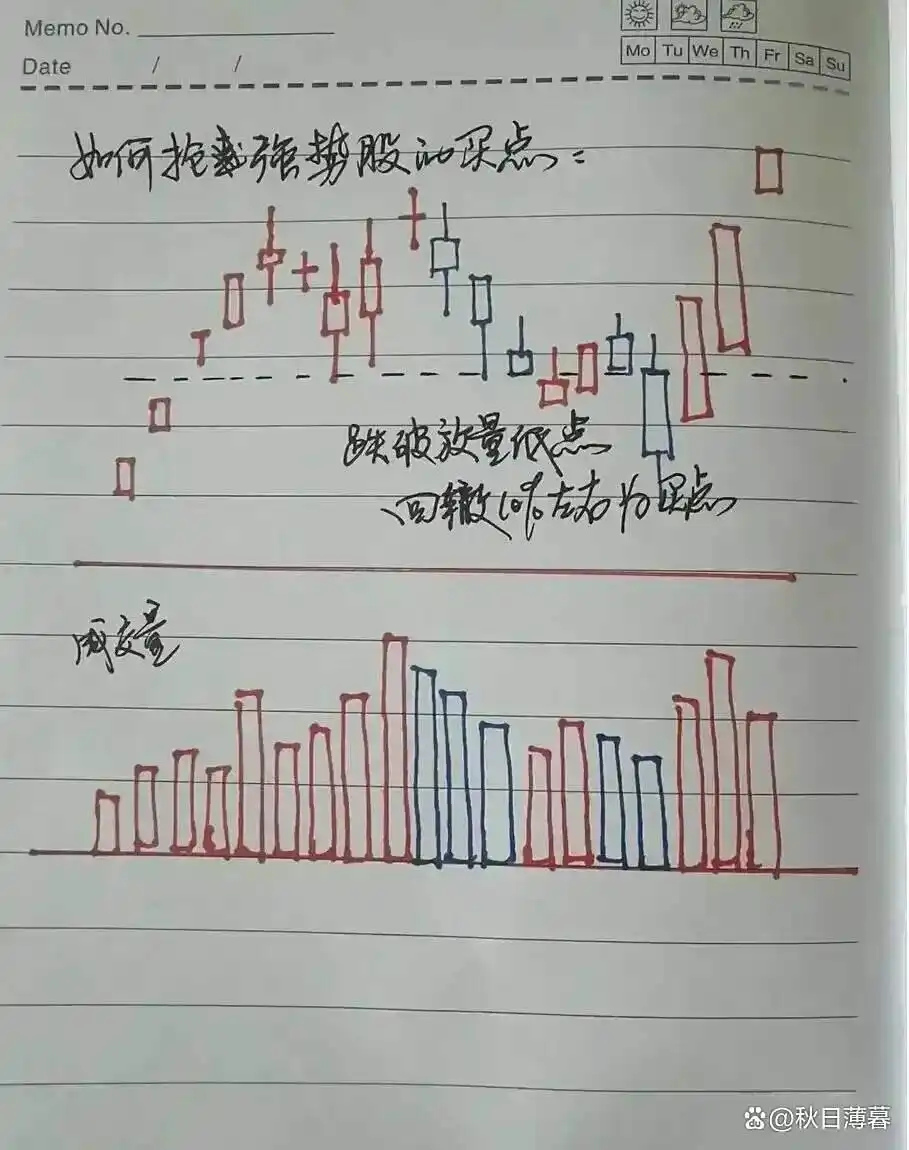 Memo No.
Mo Tu We Th Fr Sa Su
Date / /
如何抢强势股的买点:
跌破放量低点
回辙10%左右为买点
成交量
@秋日薄暮